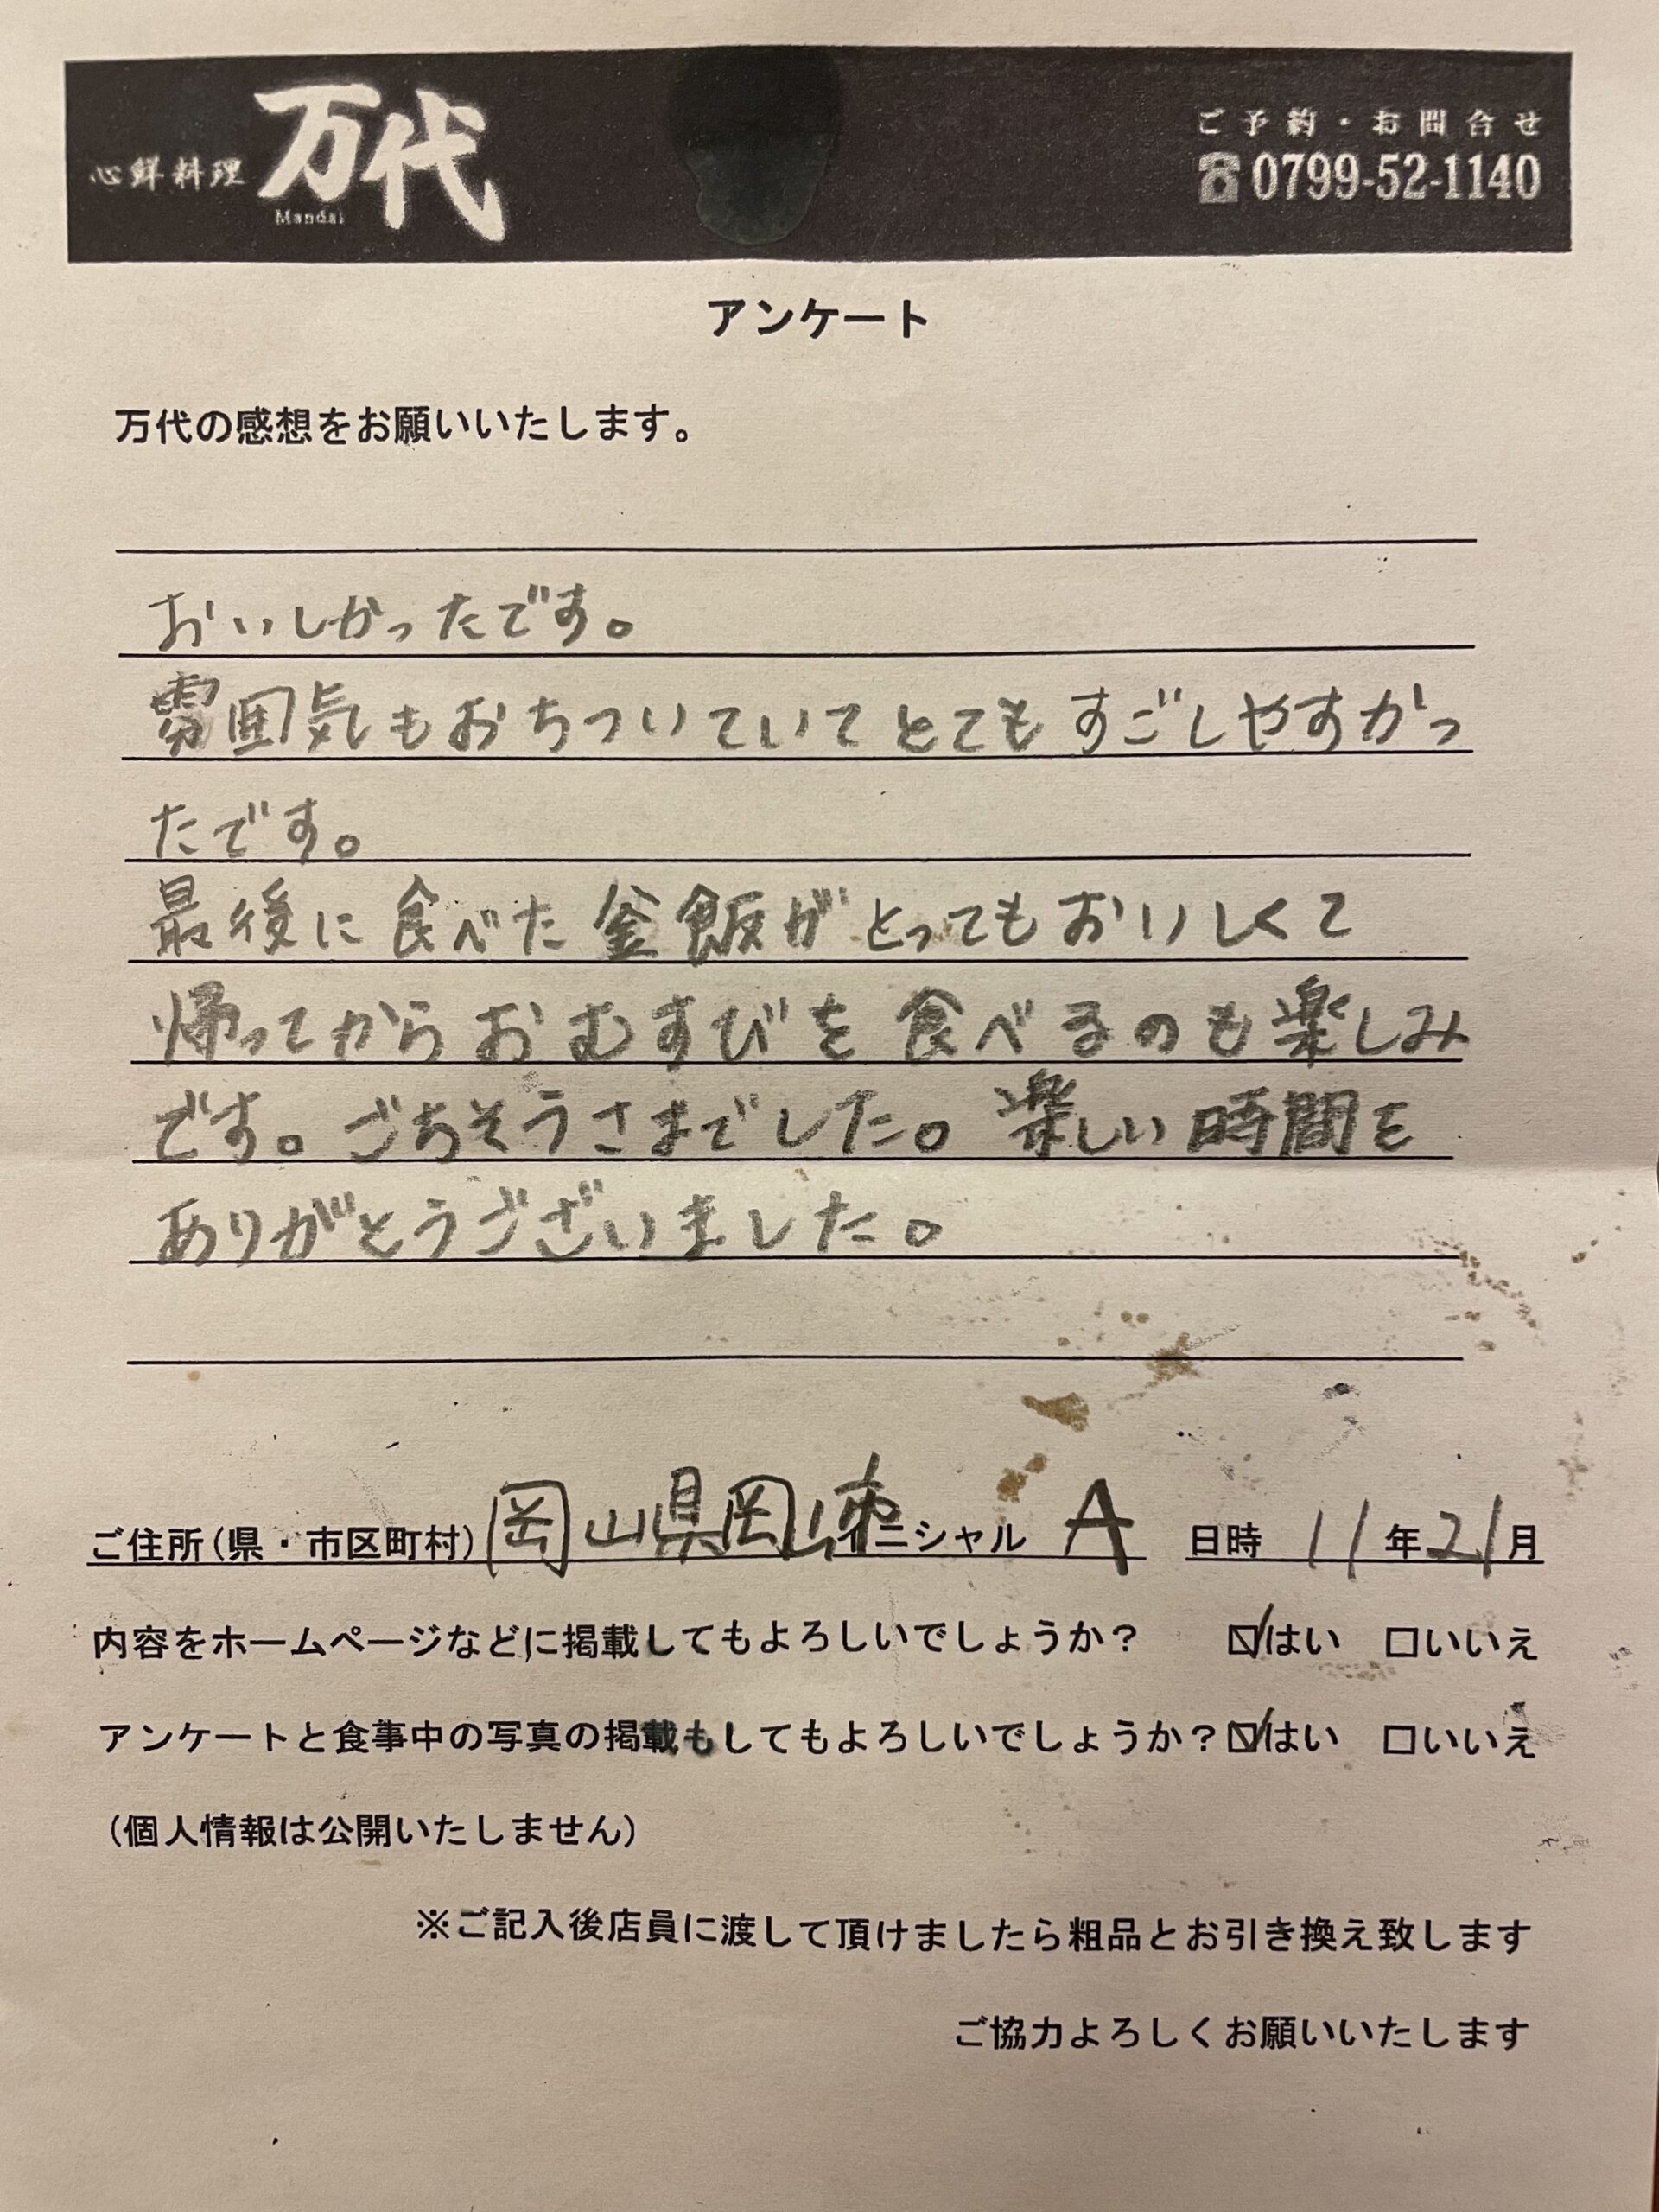 心鮮料理 万代
Mandai
ご予約・お問合せ
☎0799-52-1140
アンケート
万代の感想をお願いいたします。
おいしかったです。
雰囲気もおちついていてとてもすごしやすかっ
たです。
最後に食べた釜飯がとってもおいしくて
帰ってからおむすびを食べるのも楽しみ
です。ごちそうさまでした。楽しい時間を
ありがとうございました。
ご住所(県・市区町村) 岡山県岡山市 イニシャル A 日時 11年21月
内容をホームページなどに掲載してもよろしいでしょうか? ☑はい □いいえ
アンケートと食事中の写真の掲載もしてもよろしいでしょうか?☑はい □いいえ
(個人情報は公開いたしません)
※ご記入後店員に渡して頂けましたら粗品とお引き換え致します
ご協力よろしくお願いいたします